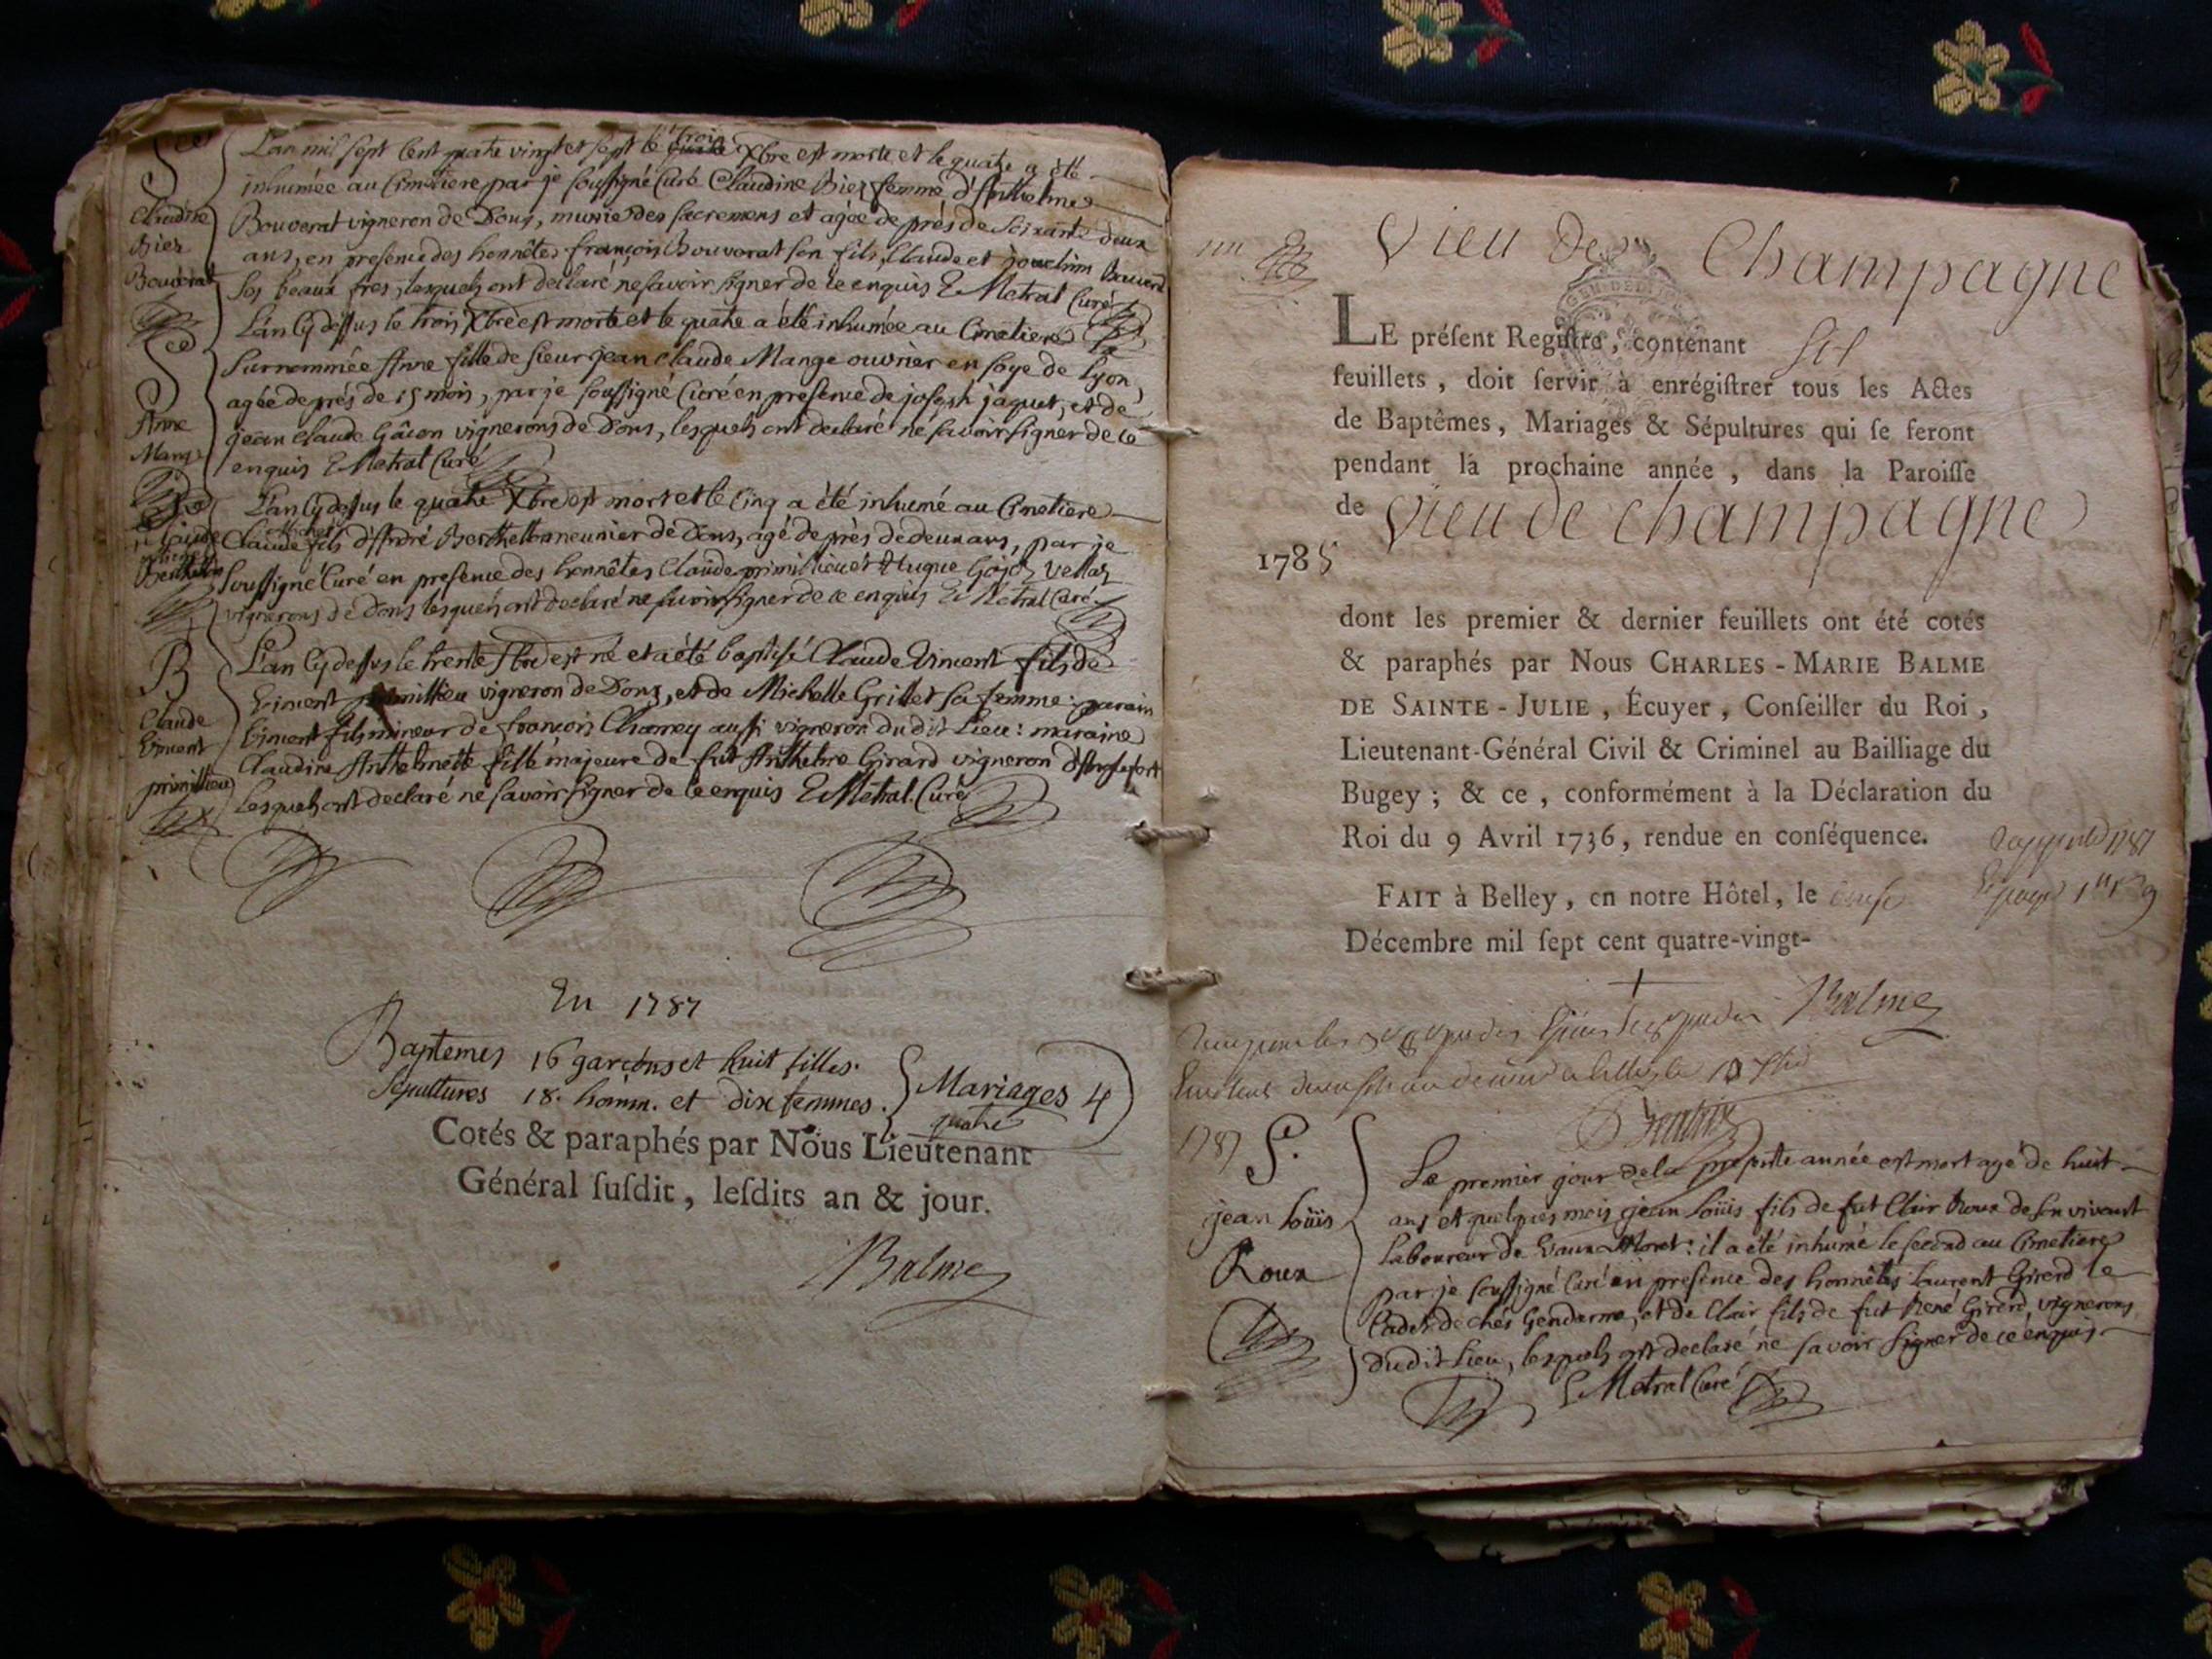 L'an mil sept cent quatre vingt et sept le trois Xbre est morte et le quatre a été
inhumée au Cimetiere par je soussigné Curé Claudine Biez femme d'Anthelme
Bouverat vigneron de Dons, munie des sacremens et agée de près de soixante deux
ans, en presence des honnêtes françois Bouverat son fils, Claude et joachim Bouverat
ses beaux fres, lesquels ont declaré ne savoir signer de ce enquis E Metral Curé
Claudine
Biez
Bouverat
L'an cy dessus le trois Xbre est morte et le quatre a été inhumée au Cimetiere
surnommée Anne fille de sieur jean claude Mange ouvrier en soye de Lyon,
agée de près de 15 mois, par je soussigné Curé en presence de joseph jaquet, et de
jean Claude Gâcon vignerons de Dons, lesquels ont declaré ne savoir signer de ce
enquis E Metral Curé
Anne
Mange
L'an cy dessus le quatre Xbre est mort et le Cinq a été inhumé au Cimetiere
Claude michel fils d'André Berthet meunier de Dons, agé de près de deux ans, par je
soussigné Curé en presence des honnêtes Claude primillieu et Hugue Gojoz
vignerons de Dons lesquels ont declaré ne savoir signer de ce enquis E Metral Curé
Claude
michel
L'an cy dessus le trente Xbre est né et a été baptisé Claude Vincent fils de
Vincent primillieu vigneron de Dons, et de Michelle Grillet sa femme: parain
Vincent fils mineur de francois Charrey aussi vigneron du dit Lieu: maraine
Claudine Anthelmette fille majeure de fut Anthelme Girard vigneron d'Artemare
lesquels ont declaré ne savoir signer de ce enquis E Metral Curé
B
Claude
Vincent
primillieu
En 1787
Baptemes 16 garçons et huit filles.
Sepultures 18. homm. et dix femmes. Mariages 4
quatre
Cotés & paraphés par Nous Lieutenant
Général susdit, lesdits an & jour.
Balme
Vieu De Champagne
LE présent Registre, contenant six
feuillets, doit servir à enrégistrer tous les Actes
de Baptêmes, Mariages & Sépultures qui se feront
pendant la prochaine année, dans la Paroisse
de Vieu de champagne
1785
dont les premier & dernier feuillets ont été cotés
& paraphés par Nous CHARLES-MARIE BALME
DE SAINTE-JULIE, Écuyer, Conseiller du Roi,
Lieutenant-Général Civil & Criminel au Bailliage du
Bugey; & ce, conformément à la Déclaration du
Roi du 9 Avril 1736, rendue en conséquence.
FAIT à Belley, en notre Hôtel, le
Décembre mil sept cent quatre-vingt-
Balme
1787
S.
jean Loüis
Roux
Le premier jour de la presente année est mort agé de huit
ans et quelques mois jean Loüis fils de fut Clair Roux de son vivant
laboureur de Vaux Moret: il a été inhumé le second au Cimetiere
par je soussigné Curé en presence des honnêtes Laurent Girerd le
Cadet de chés Gendarme, et de Clair fils de fut René Girerd, vignerons
du dit Lieu, lesquels ont declaré ne savoir signer de ce enquis
E Metral Curé